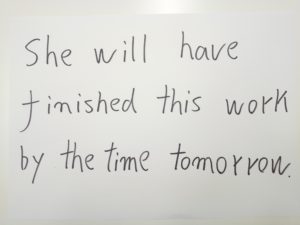 She will have
finished this work
by the time tomorrow.